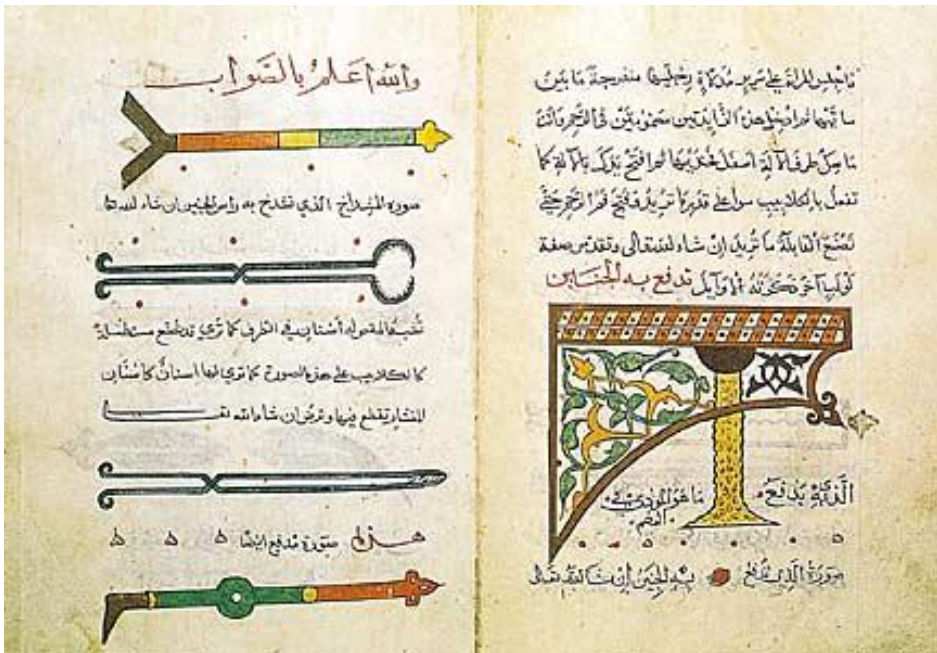 فاجلس المراة على سرير مدلاة رجليها منفرجة ما بين
ساقيها ثم ادخل هذه الزايدتين مضمومتين في الرحم وانت
ماسك طرف الآلة اسفل فخذيها ثم افتح يدك بالآلة كما
تفعل بالكلاليب سوا على قدر ما تريد فتح فم الرحم حتى
تصنع القابلة ما تريد ان شاء الله تعالى وتقدس صفة
لولب آخر ذكرته الاوايل تدفع به الجنين
الذي يدفع ما هو المؤذي في
الفم
صورة الذي تدفع به الجنين إن شا الله تعالى
والله اعلم بالصواب
صورة المشداخ الذي تشدخ به راس الجنين ان شاء الله
له اسنان في الطرف كما ترى قد تصنع مستطيلة
كالكلاليب على هذه الصورة كما ترى لها اسنان كاسنان
المنشار تقطع بها وترض ان شاء الله
هذه صورة مدفع ايضا